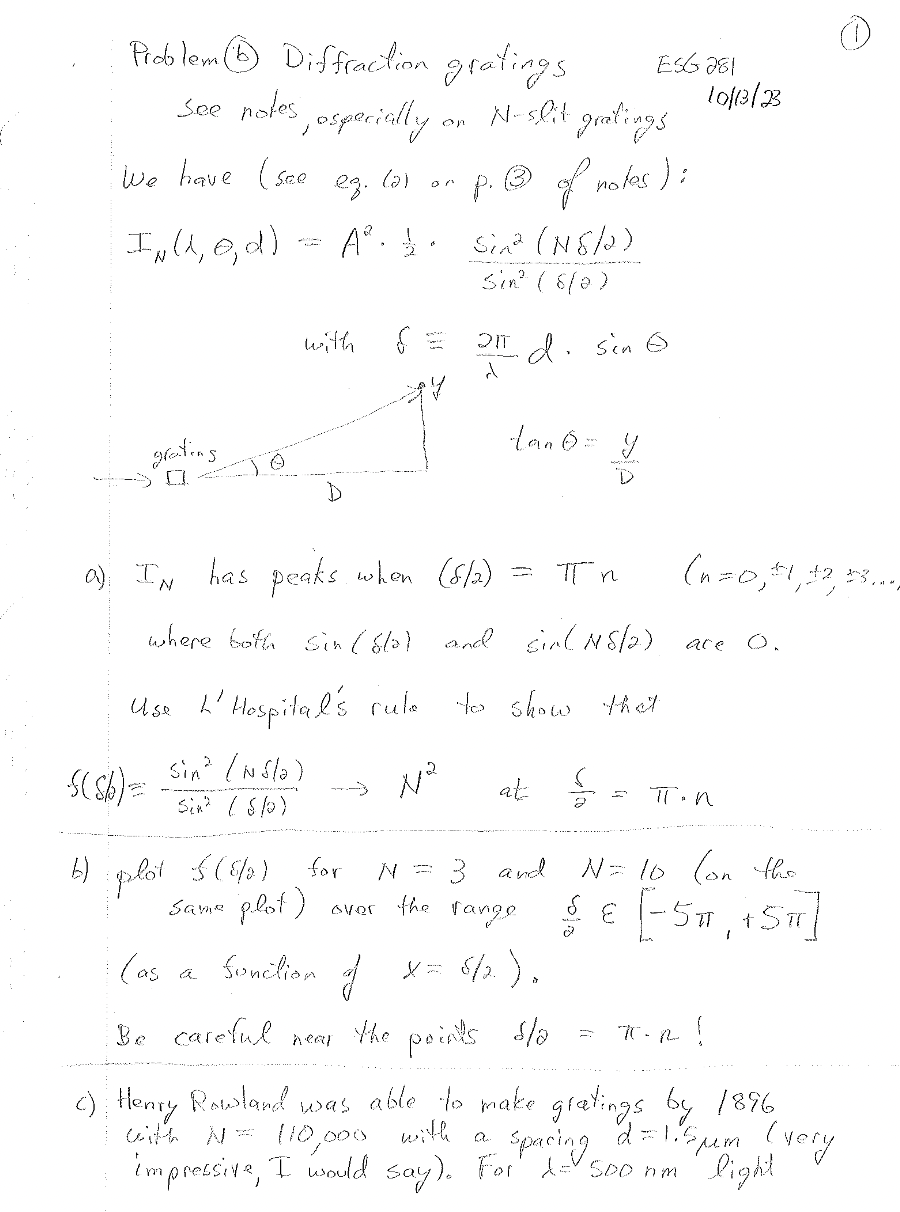 ①
Problem ⑥ Diffraction gratings ESG 281
10/13/23
see notes, especially on N-slit gratings
We have (see eq. (2) on p. ③ of notes):
I_N(λ, θ, d) = A² · ½ · sin²(Nδ/2) / sin²(δ/2)
with δ ≡ 2π/λ d · sin θ
y
grating
θ
D
tan θ = y/D
a) I_N has peaks when (δ/2) = π n (n = 0, ±1, ±2, ±3...,
where both sin(δ/2) and sin(Nδ/2) are 0.
Use L'Hospital's rule to show that
f(δ/2) = sin²(Nδ/2) / sin²(δ/2) → N² at δ/2 = π·n
b) plot f(δ/2) for N = 3 and N = 10 (on the
same plot) over the range δ/2 ε [-5π, +5π]
(as a function of x = δ/2).
Be careful near the points δ/2 = π·n !
c) Henry Rowland was able to make gratings by 1896
with N = 110,000 with a spacing d = 1.5 μm (very
impressive, I would say). For λ = 500 nm light